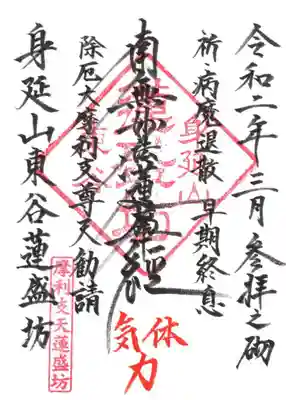 令和二年三月参拝之砌
祈・病魔退散 早期終息
身延山
南無妙法蓮華経
除厄大摩利支尊天 勧請
身延山東谷蓮盛坊
摩利支天蓮盛坊
休
気力